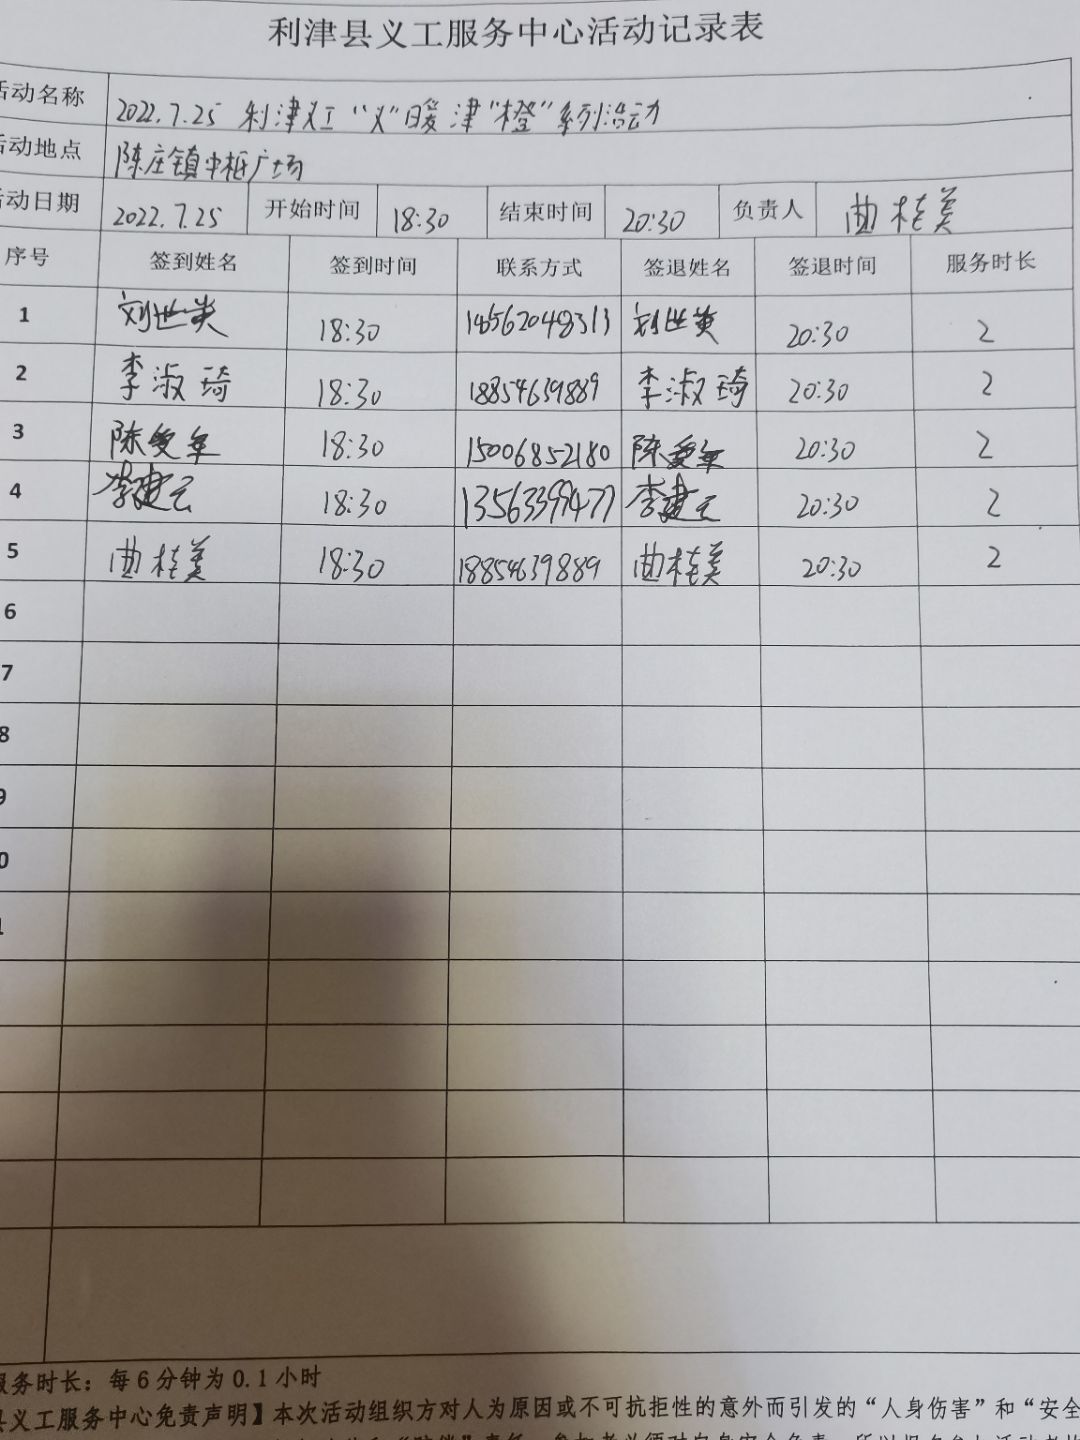 利津县义工服务中心活动记录表
活动名称 2022.7.25 利津义工“义”暖津“橙”系列活动
活动地点 陈庄镇中柜广场
活动日期 2022.7.25 开始时间 18:30 结束时间 20:30 负责人 曲桂美
序号 签到姓名 签到时间 联系方式 签退姓名 签退时间 服务时长
1 刘世英 18:30 刘世英 20:30 2
2 李淑琦 18:30 18854639889 李淑琦 20:30 2
3 陈爱军 18:30 15006852180 陈爱军 20:30 2
4 李建云 18:30 13563399477 李建云 20:30 2
5 曲桂美 18:30 18854639889 曲桂美 20:30 2
6
7
8
9
0
1
服务时长：每6分钟为0.1小时
县义工服务中心免责声明】本次活动组织方对人为原因或不可抗拒性的意外而引发的“人身伤害”和“安全